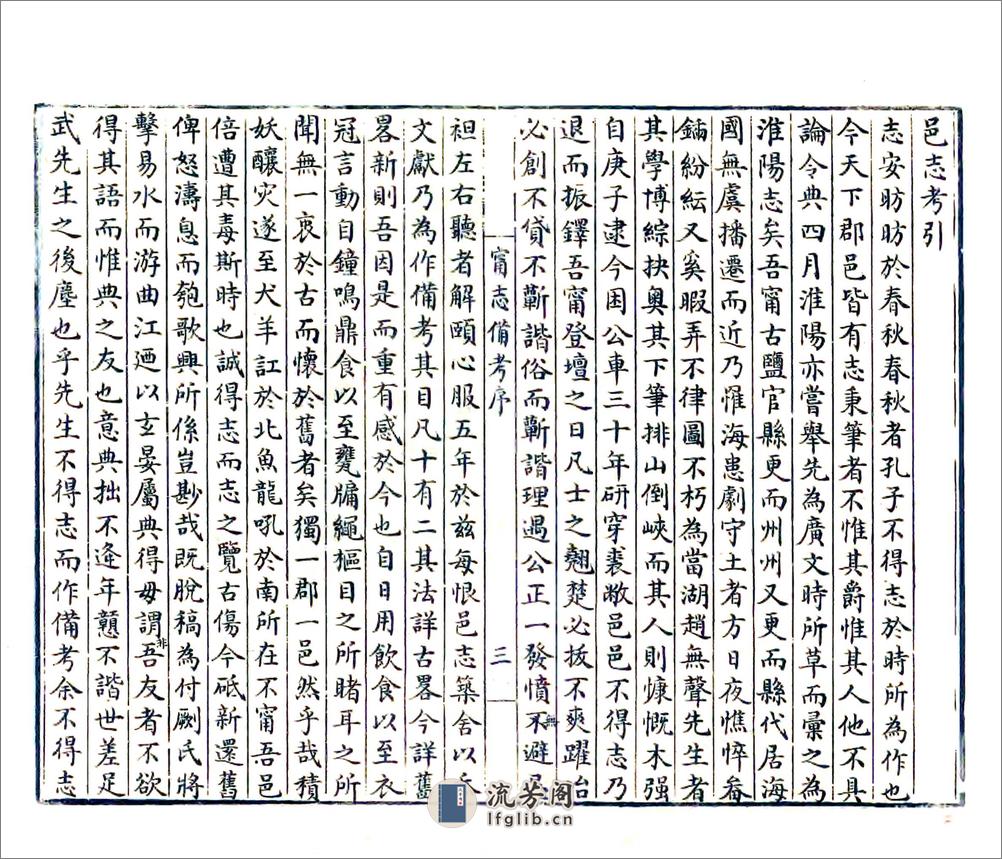 邑志考引
志安昉昉於春秋春秋者孔子不得志於時所為作也
今天下郡邑皆有志秉筆者不惟其爵惟其人他不具
論令典四月淮陽亦嘗舉先為廣文時所草而彙之為
淮陽志矣吾甯古鹽官縣更而州州又更而縣代居海
國無虞播遷而近乃惟海患劇守土者方日夜憔悴畚
鍤紛紜又奚暇弄不律圖不朽為當湖趙無聲先生者
其學博綜抉奧其下筆排山倒峽而其人則慷慨木强
自庚子逮今困公車三十年研穿裘敝邑邑不得志乃
退而振鐸吾甯登壇之日凡士之翹楚必拔不爽躍冶
必創不貸不蘄諧俗而蘄諧理遇公正一發憤不無避
甯志備考序
三
袒左右聽者解頤心服五年於兹每恨邑志築舍以
文獻乃為作備考其目凡十有二其法詳古畧今詳舊
畧新則吾因是而重有感於今也自日用飲食以至衣
冠言動自鐘鳴鼎食以至甕牖繩樞目之所睹耳之所
聞無一衷於古而懷於舊者矣獨一郡一邑然乎哉積
妖釀灾遂至犬羊訌於北魚龍吼於南所在不甯吾邑
倍遭其毒斯時也誠得志而志之覽古傷今砥新還舊
俾怒濤息而匏歌興所係豈尠哉既脫稿為付劂氏將
擊易水而游曲江廼以玄晏屬典得毋謂非吾友者不欲
得其語而惟典之友也意典拙不逄年戇不諧世差足
武先生之後塵也乎先生不得志而作備考余不得志
流芳阁
lfglib.cn